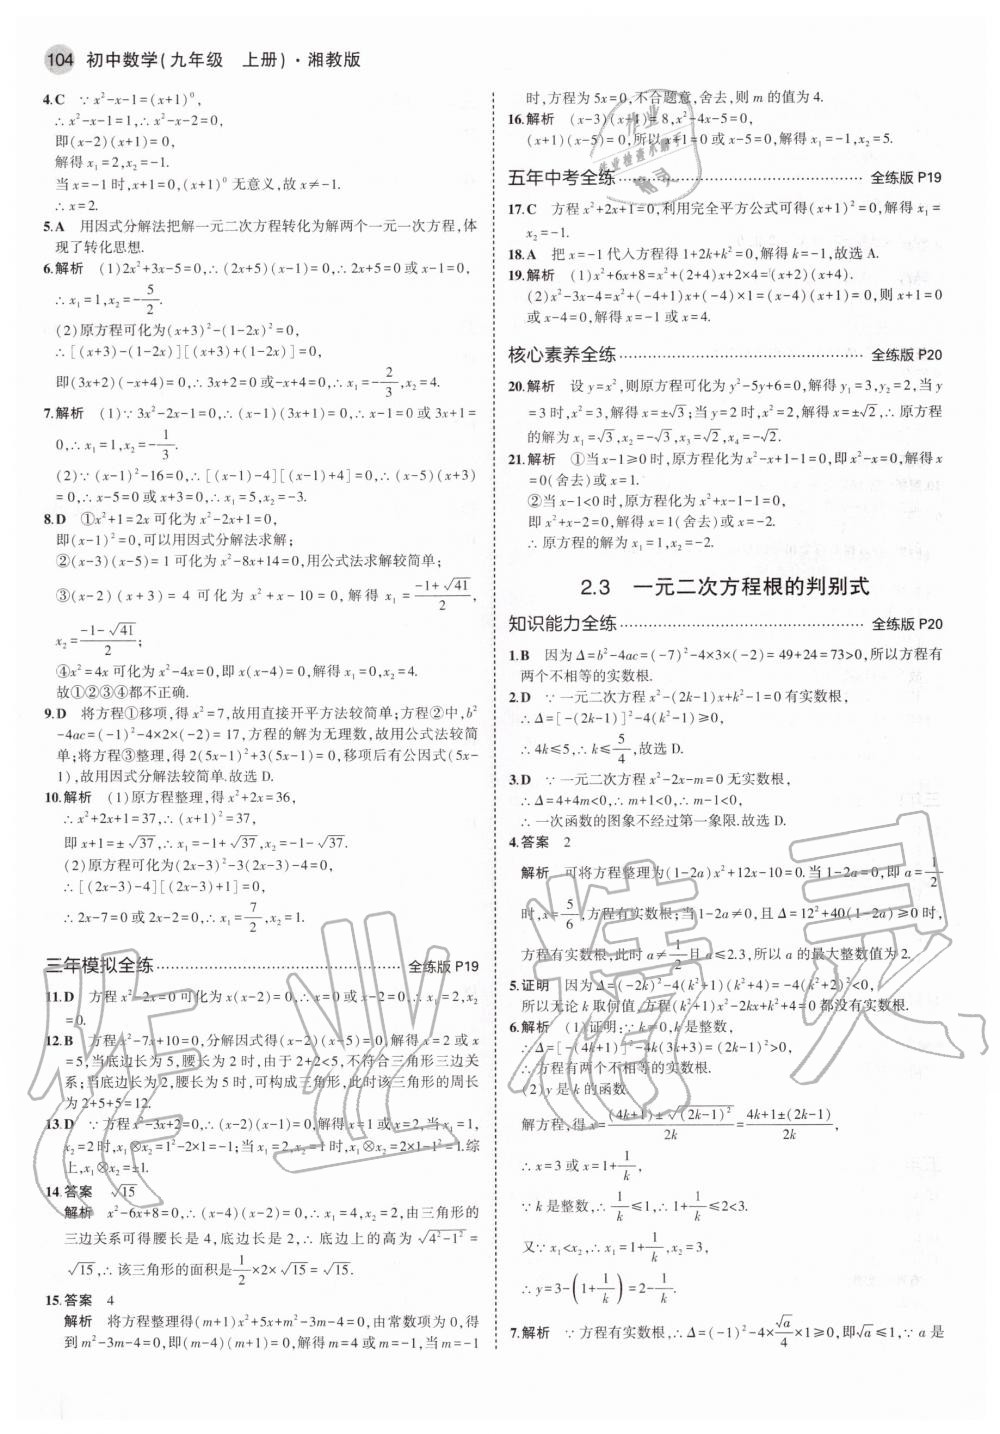 104 初中数学(九年级 上册)·湘教版
4.C ∵x²-x-1=(x+1)⁰,
∴x²-x-1=1,∴x²-x-2=0,
即(x-2)(x+1)=0,
解得x₁=2,x₂=-1.
当x=-1时,x+1=0,(x+1)⁰无意义,故x≠-1.
∴x=2.
5.A 用因式分解法把解一元二次方程转化为解两个一元一次方程,体
现了转化思想.
6.解析 (1)2x²+3x-5=0,∴(2x+5)(x-1)=0,∴2x+5=0或x-1=0,
∴x₁=1,x₂=-5/2.
(2)原方程可化为(x+3)²-(1-2x)²=0,
∴[(x+3)-(1-2x)][(x+3)+(1-2x)]=0,
即(3x+2)(-x+4)=0,∴3x+2=0或-x+4=0,∴x₁=-2/3,x₂=4.
7.解析 (1)∵3x²-2x-1=0,∴(x-1)(3x+1)=0,∴x-1=0或3x+1=
0,∴x₁=1,x₂=-1/3.
(2)∵(x-1)²-16=0,∴[(x-1)-4][(x-1)+4]=0,∴(x-5)(x+3)
=0,∴x-5=0或x+3=0,∴x₁=5,x₂=-3.
8.D ①x²+1=2x可化为x²-2x+1=0,
即(x-1)²=0,可以用因式分解法求解;
②(x-3)(x-5)=1可化为x²-8x+14=0,用公式法求解较简单;
③(x-2)(x+3)=4可化为x²+x-10=0,解得x₁=(-1+√41)/2,
x₂=(-1-√41)/2;
④x²=4x可化为x²-4x=0,即x(x-4)=0,解得x₁=0,x₂=4.
故①②③④都不正确.
9.D 将方程①移项,得x²=7,故用直接开平方法较简单;方程②中,b²
-4ac=(-1)²-4×2×(-2)=17,方程的解为无理数,故用公式法较简
单;将方程③整理,得2(5x-1)²+3(5x-1)=0,移项后有公因式(5x-
1),故用因式分解法较简单.故选D.
10.解析 (1)原方程整理,得x²+2x=36,
∴x²+2x+1=37,∴(x+1)²=37,
即x+1=±√37,∴x₁=-1+√37,x₂=-1-√37.
(2)原方程可化为(2x-3)²-3(2x-3)-4=0,
∴[(2x-3)-4][(2x-3)+1]=0,
∴2x-7=0或2x-2=0,∴x₁=7/2,x₂=1.
三年模拟全练 全练版P19
11.D 方程x²-2x=0可化为x(x-2)=0,∴x=0或x-2=0,∴x₁=2,x₂
=0.
12.B 方程x²-7x+10=0,分解因式得(x-2)(x-5)=0,解得x=2或x
=5,当底边长为5,腰长为2时,由于2+2<5,不符合三角形三边关
系;当底边长为2,腰长为5时,可构成三角形,此时该三角形的周长
为2+5+5=12.
13.D ∵方程x²-3x+2=0,∴(x-2)(x-1)=0,解得x=1或x=2,当x₁=1,
x₂=2时,x₁⊗x₂=1²-2×1=-1;当x₁=2,x₂=1时,x₁⊗x₂=2×1-1²=1.综
上,x₁⊗x₂=±1.
14.答案 √15
解析 x²-6x+8=0,∴(x-4)(x-2)=0,∴x₁=4,x₂=2,由三角形的
三边关系可得腰长是4,底边长是2,∴底边上的高为√(4²-1²)=
√15,∴该三角形的面积是1/2×2×√15=√15.
15.答案 4
解析 将方程整理得(m+1)x²+5x+m²-3m-4=0,由常数项为0,得
到m²-3m-4=0,即(m-4)(m+1)=0,解得m=4或m=-1,当m=-1
时,方程为5x=0,不合题意,舍去,则m的值为4.
16.解析 (x-3)(x-1)=8,x²-4x-5=0,
(x+1)(x-5)=0,所以x+1=0或x-5=0,解得x₁=-1,x₂=5.
五年中考全练 全练版P19
17.C 方程x²+2x+1=0,利用完全平方公式可得(x+1)²=0,解得x₁=
x₂=-1.
18.A 把x=-1代入方程得1+2k+k²=0,解得k=-1,故选A.
19.解析 (1)x²+6x+8=x²+(2+4)x+2×4=(x+2)(x+4).
(2)x²-3x-4=x²+(-4+1)x+(-4)×1=(x-4)(x+1)=0,则x+1=0
或x-4=0,解得x=-1或x=4.
核心素养全练 全练版P20
20.解析 设y=x²,则原方程可化为y²-5y+6=0,解得y₁=3,y₂=2,当y
=3时,x²=3,解得x=±√3;当y=2时,x²=2,解得x=±√2,∴原方程
的解为x₁=√3,x₂=-√3,x₃=√2,x₄=-√2.
21.解析 ①当x-1≥0时,原方程化为x²-x+1-1=0,即x²-x=0,解得x
=0(舍去)或x=1.
②当x-1<0时,原方程化为x²+x-1-1=0,
即x²+x-2=0,解得x=1(舍去)或x=-2.
∴原方程的解为x₁=1,x₂=-2.
2.3 一元二次方程根的判别式
知识能力全练 全练版P20
1.B 因为Δ=b²-4ac=(-7)²-4×3×(-2)=49+24=73>0,所以方程有
两个不相等的实数根.
2.D ∵一元二次方程x²-(2k-1)x+k²-1=0有实数根,
∴Δ=[-(2k-1)]²-4(k²-1)≥0,
∴4k≤5,∴k≤5/4,故选D.
3.D ∵一元二次方程x²-2x-m=0无实数根,
∴Δ=4+4m<0,∴m+1<0,∴m-1<0,
∴一次函数的图象不经过第一象限.故选D.
4.答案 2
解析 可将方程整理为(1-2a)x²+12x-10=0.当1-2a=0,即a=1/2
时,x=5/6,方程有实数根;当1-2a≠0,且Δ=12²+40(1-2a)≥0时,
方程有实数根,此时a≠1/2且a≤2.3,所以a的最大整数值为2.
5.证明 因为Δ=(-2k)²-4(k²+1)(k²+4)=-4(k²+2)²<0,
所以无论k取何值,方程(k²+1)x²-2kx+k²+4=0都没有实数根.
6.解析 (1)证明:∵k≠0,k是整数,
∴Δ=[-(4k+1)]²-4k(3k+3)=(2k-1)²>0,
∴方程有两个不相等的实数根.
(2)y是k的函数.
解方程,得x=((4k+1)±√((2k-1)²))/2k=(4k+1±(2k-1))/2k,
∴x=3或x=1+1/k,
∵k是整数,∴1/k≤1,∴1+1/k≤2<3.
又∵x₁<x₂,∴x₁=1+1/k,x₂=3,
∴y=3-(1+1/k)=2-1/k.
7.解析 ∵方程有实数根,∴Δ=(-1)²-4×√a/4×1≥0,即√a≤1,∵a是
作业精灵